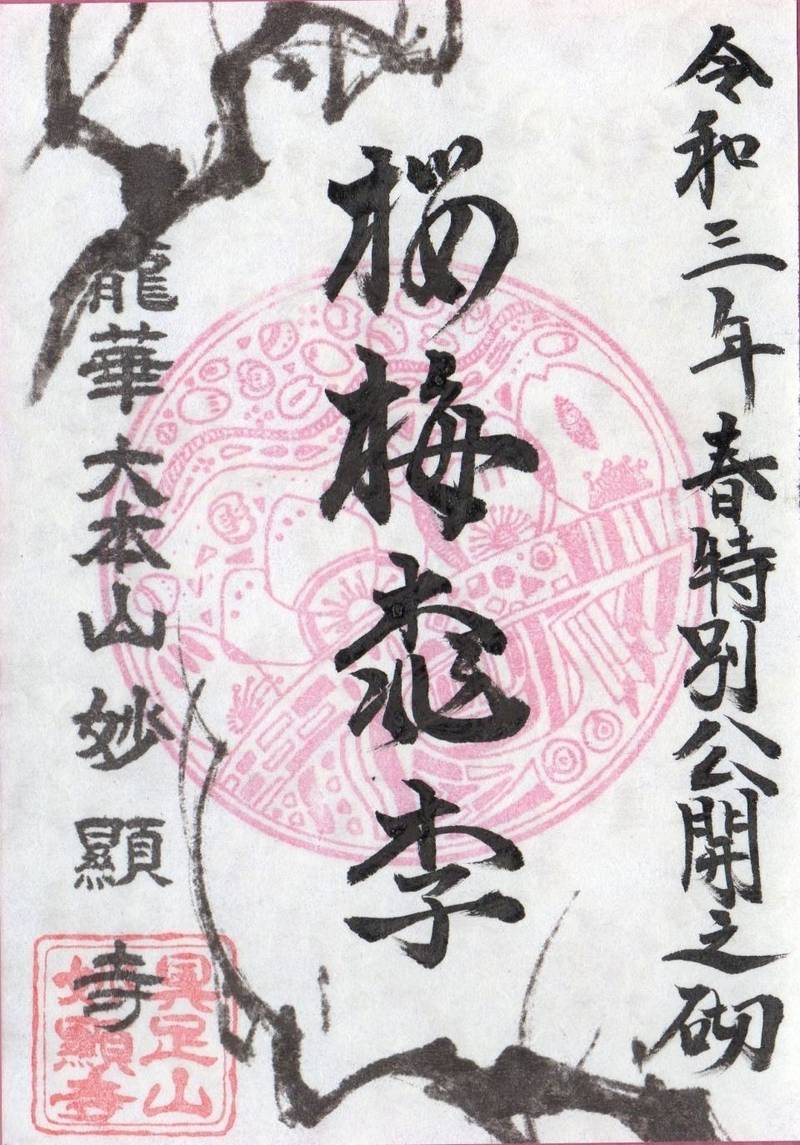 令和三年春特別公開之砌
桜梅桃李
龍華 大本山 妙顯寺
具足山
妙顯寺